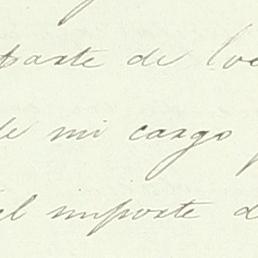 parte de los
de mi cargo
el importe d